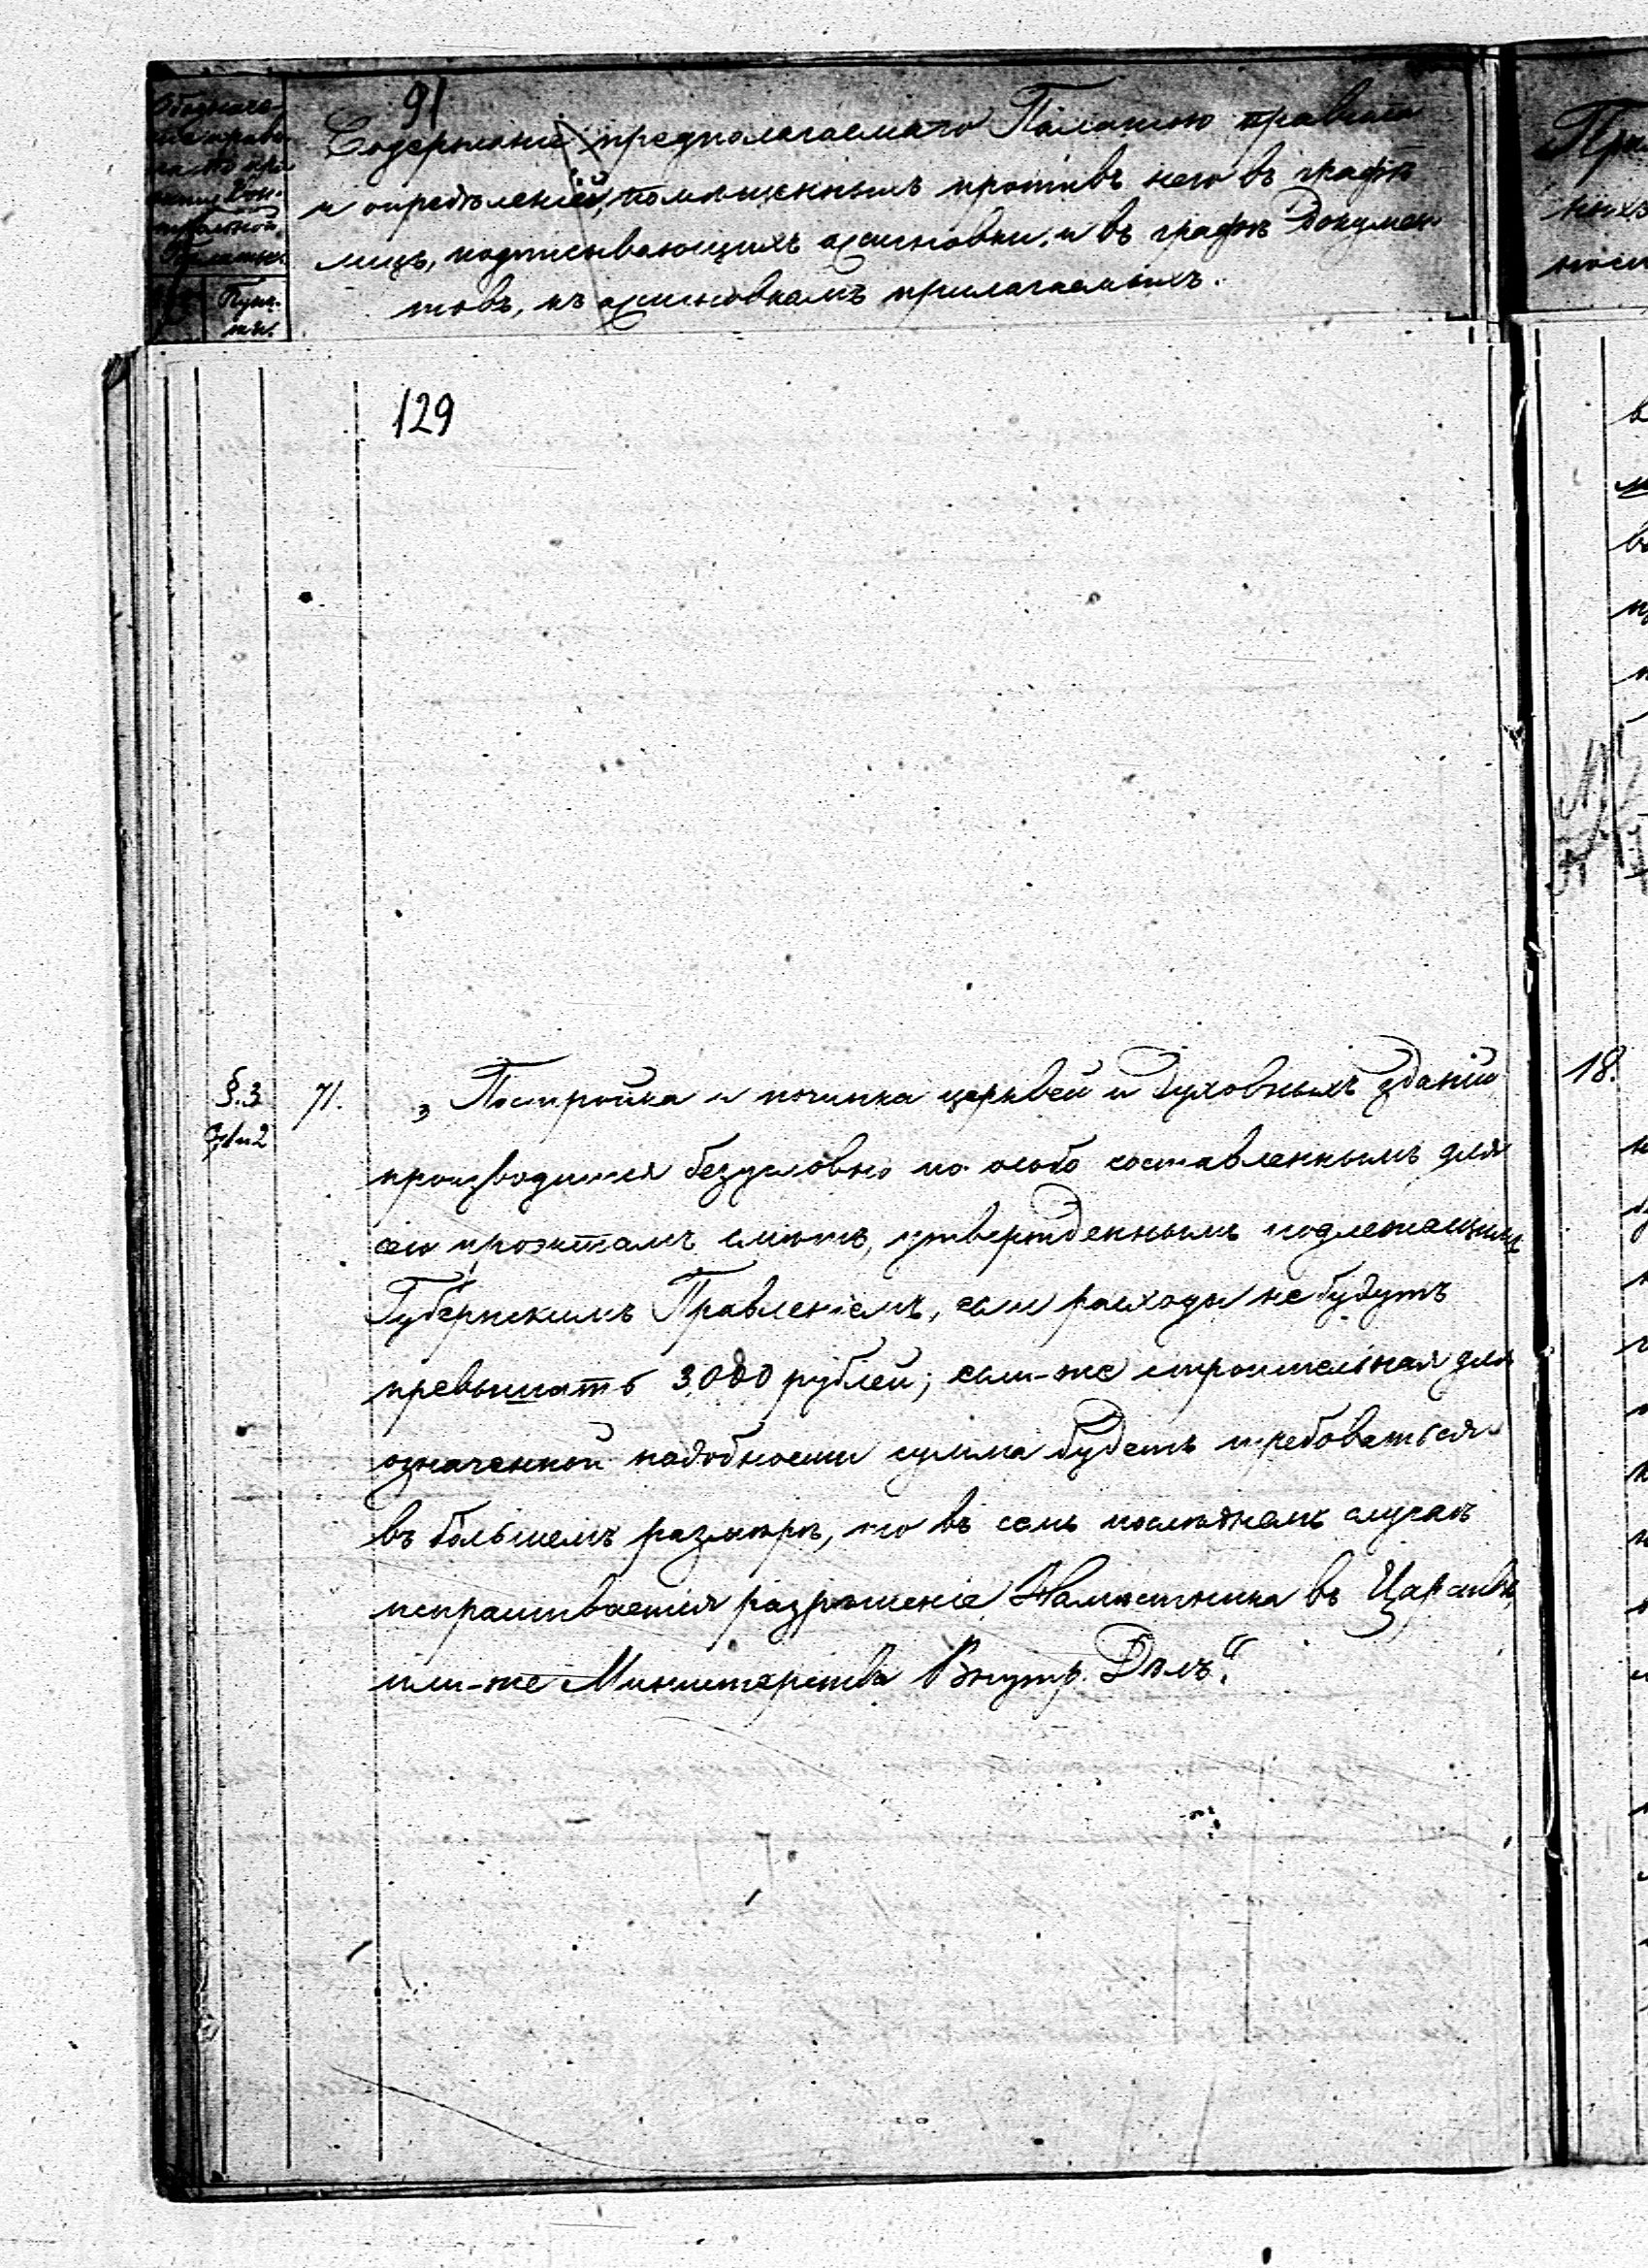 91
Обозначе-
ніе прави-
ла по
Кон-
трольной
Палаты.
Пунк-
ты.
Содержаніе предполагаемаго Палатою правила
и опредѣленій, помѣщенныхъ противъ него въ графѣ
лицъ, подписывающихъ ассигновки, и въ графѣ докумен
товъ, къ ассигновкамъ прилагаемыхъ.
129
§.3 71. „Постройка и починка церквей и духовныхъ зданій
производится безусловно по особо составленнымъ для
сего проэктамъ смѣтъ, утвержденнымъ подлежащимъ
Губернскимъ Правленіемъ, если расходы не будутъ
превышать 3.000 рублей; если-же строительная для
означенной надобности сумма будетъ требоваться
въ большемъ размѣрѣ, то въ семъ послѣднемъ случаѣ
испрашивается разрѣшеніе Намѣстника въ Царствѣ,
или-же Министерства Внутр. Дѣлъ.“
18.